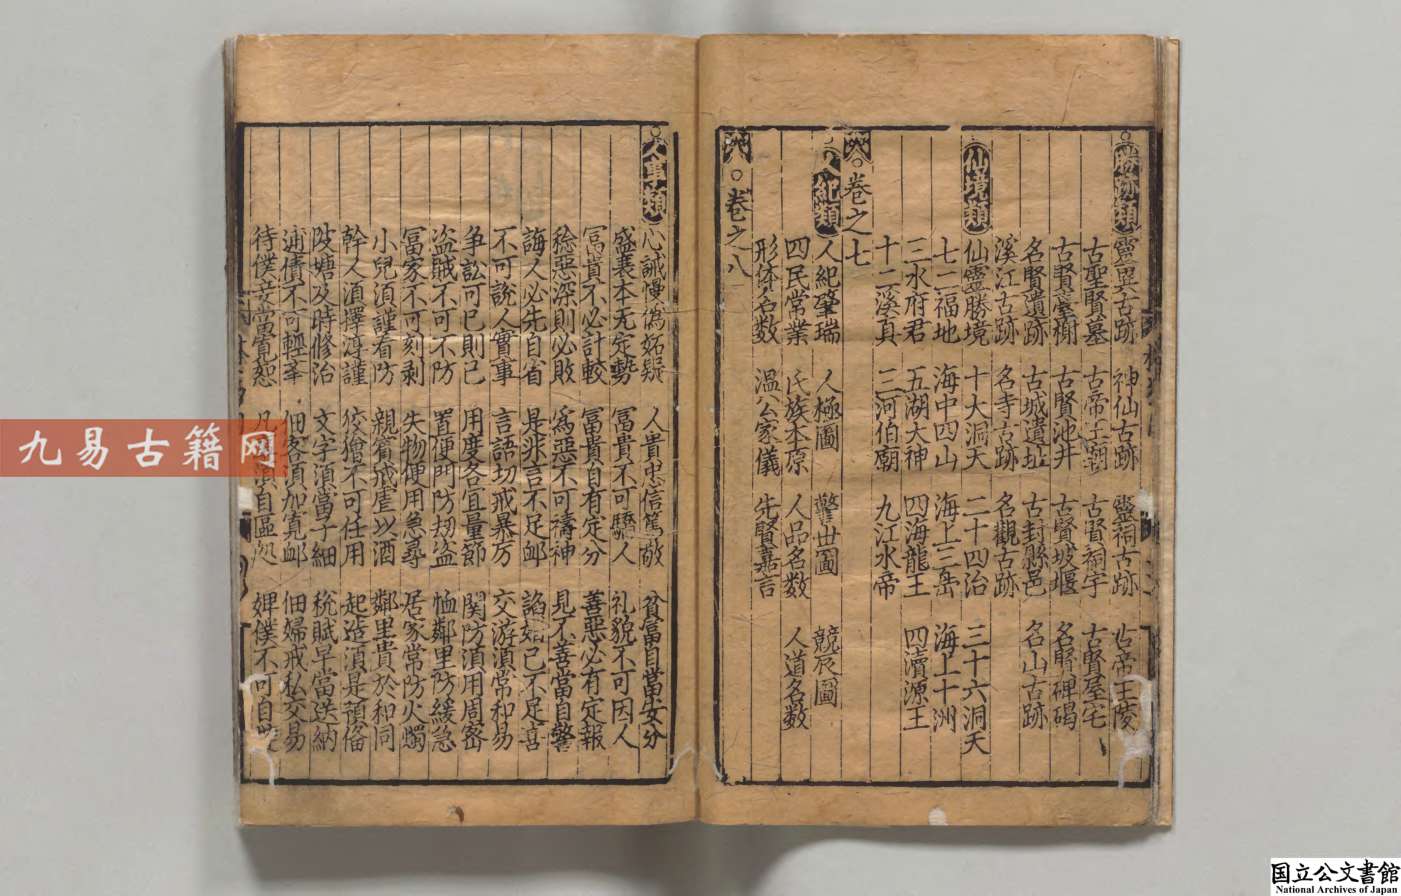 勝跡類
靈異古跡 神仙古跡 靈祠古跡 古帝王陵
古聖賢墓 古帝王廟 古賢祠宇 古賢屋宅
古賢臺榭 古賢池井 古賢坡堰 名賢碑碣
名賢遺跡 古城遺址 古封縣邑 名山古跡
溪江古跡 名寺古跡 名觀古跡
仙境類
仙靈勝境 十大洞天 二十四治 三十六洞天
七二福地 海中四山 海上三岳 海上十洲
三水府君 五湖大神 四海龍王 四瀆源王
十二溪真 三河伯廟 九江水帝
卷之七
人紀類
人紀肇瑞 人極圖 警世圖 競辰圖
四民常業 氏族本原 人品名数 人道名数
形体名数 温公家儀 先賢嘉言
卷之八
人事類
心誠慢僞妬疑 人貴忠信篤敬 貧富自當安分
盛衰本无定勢 冨貴不可驕人 礼貌不可因人
冨貴不必計較 冨貴自有定分 善惡必有定報
稔惡深則必敗 爲惡不可禱神 見不善當自警
誨人必先自省 是非言不足邮 諂
不可說人實事 言語切戒暴厉 交游湏常和易
争訟可已則已 用度各宜量節 関防湏用周密
盗賊不可不防 置便門防刼盗 恤鄰里防緩急
冨家不可刻剥 失物便用急尋 居家常防火燭
小兒湏謹看防 親賓戒虐以酒 鄰里貴於和同
幹人湏擇淳謹 狡獪不可任用 起造湏是預俻
陂塘及時修治 文字湏當子細 稅賦早當送納
逋債不可輕 佃客湏加寬邮 佃婦戒私交易
待僕妾當寬恕 自區处 婢僕不可自
九易古籍网
国立公文書館
National Archives of Japan